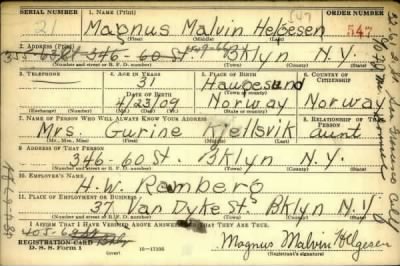 SERIAL NUMBER 1. NAME (Print) ORDER NUMBER
21 Magnus Malvin Helgesen 547
(First) (Middle) (Last)
2. ADDRESS (Print)
346-60 St. Bklyn N.Y.
(Number and street or R. F. D. number) (Town) (County) (State)
3. TELEPHONE 4. AGE IN YEARS 5. PLACE OF BIRTH 6. COUNTRY OF CITIZENSHIP
31 Haugesund
DATE OF BIRTH
4/23/09 Norway Norway
(Exchange) (Number) (Mo.) (Day) (Yr.) (State or country)
7. NAME OF PERSON WHO WILL ALWAYS KNOW YOUR ADDRESS 8. RELATIONSHIP OF THAT PERSON
Mrs. Gurine Kjellsvik aunt
(Mr., Mrs., Miss) (First) (Middle) (Last)
9. ADDRESS OF THAT PERSON
346-60 St. Bklyn N.Y.
(Number and street or R. F. D. number) (Town) (County) (State)
10. EMPLOYER'S NAME
H. W. Ramberg
11. PLACE OF EMPLOYMENT OR BUSINESS
37 Van Dyke St. Bklyn N.Y.
(Number and street or R. F. D. number) (Town) (County) (State)
I AFFIRM THAT I HAVE VERIFIED ABOVE ANSWERS AND THAT THEY ARE TRUE.
REGISTRATION CARD
D. S. S. Form 1 (over) 16-17105 Magnus Malvin Helgesen
(Registrant's signature)